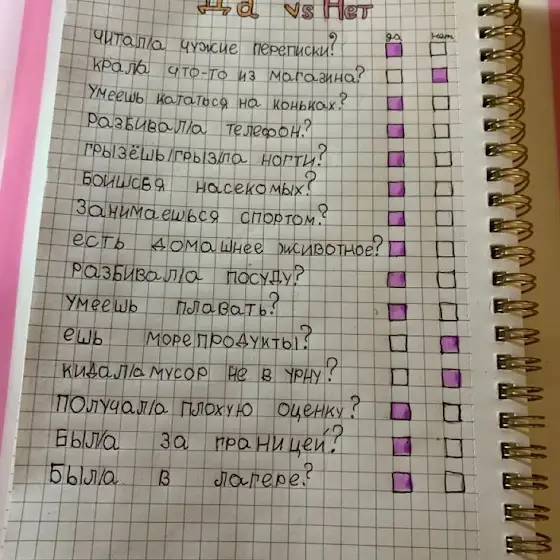 Да vs Нет
да нет
читал/а чужие переписки?
крал/а что-то из магазина?
Умеешь кататься на коньках?
Разбивал/а телефон?
грызёшь/грызла ногти?
боишсья насекомых?
Занимаешься спортом?
есть домашнее животное?
Разбивал/а посуду?
Умеешь плавать?
ешь морепродукты?
кидал/а мусор не в урну?
получал/а плохую оценку?
Был/а за границей?
Был/а в лагере?